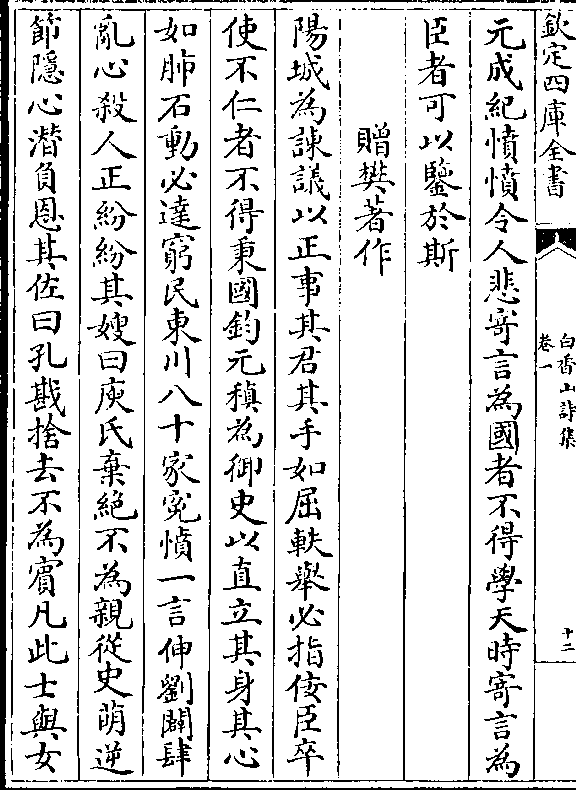 欽定四庫全書
白香山詩集
卷一
十二
元成紀憤憤令人悲寄言為國者不得學天時寄言為
臣者可以鑒於斯
贈樊著作
陽城為諫議以正事其君其手如屈軼舉必指佞臣卒
使不仁者不得秉國鈞元稹為御史以直立其身其心
如肺石動必達窮民東川八十家寃憤一言伸劉闢肆
亂心殺人正紛紛其嫂曰庾氏棄絶不為親從史萌逆
節隱心潛負恩其佐曰孔戡捨去不為賔凡此士與女